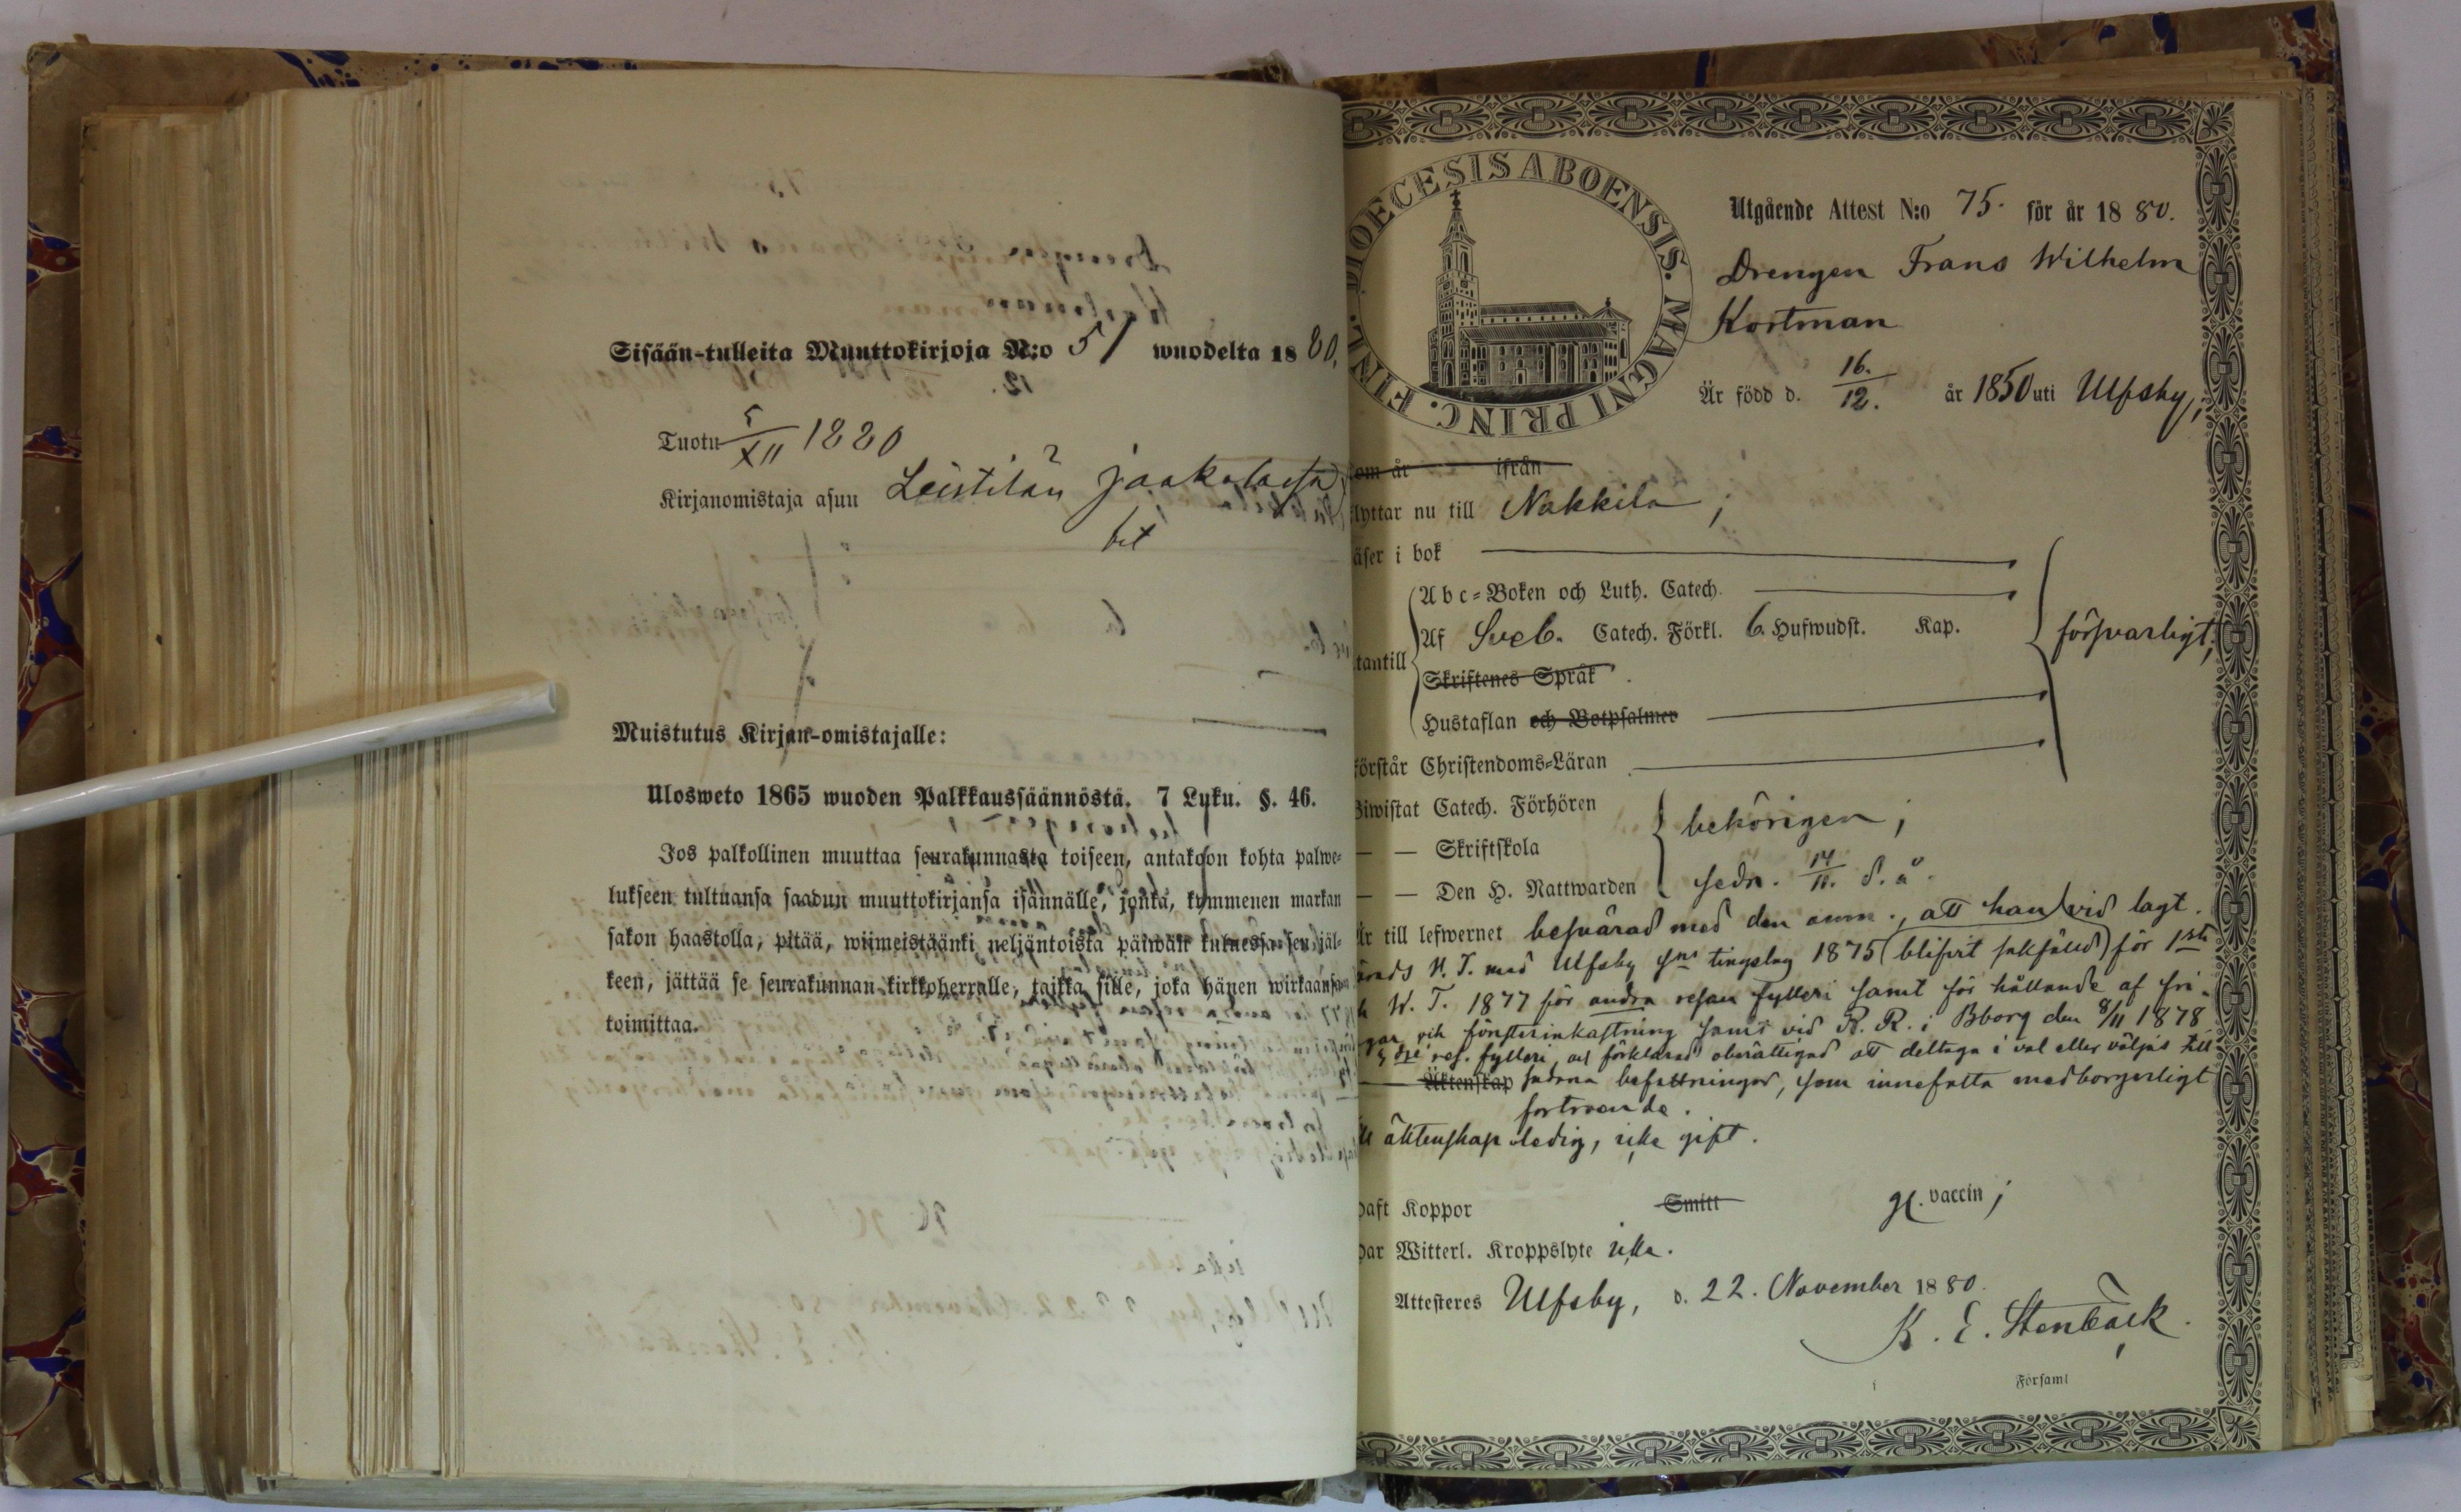 Sisään-tulleita Muuttokirjoja N:o 51 wuodelta 1880.
Tuotu 5/XII 1880
Kirjanomistaja asuu Leistilän Jaakolassa
Muistutus Kirjan-omistajalle:
Ulosweto 1865 wuoden Palkkaussäännöstä. 7 Luku. §. 46.
Jos palkollinen muuttaa seurakunnasta toiseen, antakoon kohta palwe-
lukseen tultuansa saadun muuttokirjansa isännälle, jonka, kymmenen markan
sakon haastolla, pitää, wiimeistäänki neljäntoista päiwän kuluessa sen jäl-
keen, jättää se seurakunnan kirkkoherralle, taikka sille, joka hänen wirkaansa
toimittaa.
DIOECESIS ABOENSIS. MAGNI PRINC. FINL.
Utgående Attest N:o 75. för år 1880.
Drengen Frans Wilhelm
Kortman
Är född d. 16./12. år 1850 uti Ulfsby,
om år ifrån
lyttar nu till Nakkila;
äser i bok
Abc-Boken och Luth. Catech.
Af Sveb. Catech. Förkl. 6. Hufwudst. Kap.
försvarligt;
tantill
Skriftenes Språk
Hustaflan och Botpsalmer
örstår Christendoms-Läran
Biwistat Catech. Förhören
behörigen;
— — Skriftskola
— — Den H. Nattwarden sedn. 14/11. d. å.
Är till lefwernet besvärad med den anm., att han vid lagt.
ärads H. T. med Ulfsby sns tingslag 1875 (blifvit sakfäld) för 1sta
h W. T. 1877 för andra resan fylleri samt för hållande af fri-
och fönsterinkastning samt vid R. R. i Bborg den 8/11 1878
res. fylleri, och förklarad oberättigad att deltaga i val eller väljas till
— Äktenskap sådana befattningar, som innefatta medborgerligt
förtroende.
äktenskap ledig, icke gift.
haft Koppor Smitt gl. vaccin;
har Witterl. Kroppslyte icke.
Attesteres Ulfsby, d. 22. November 1880.
K. E. Stenbäck.
Församl